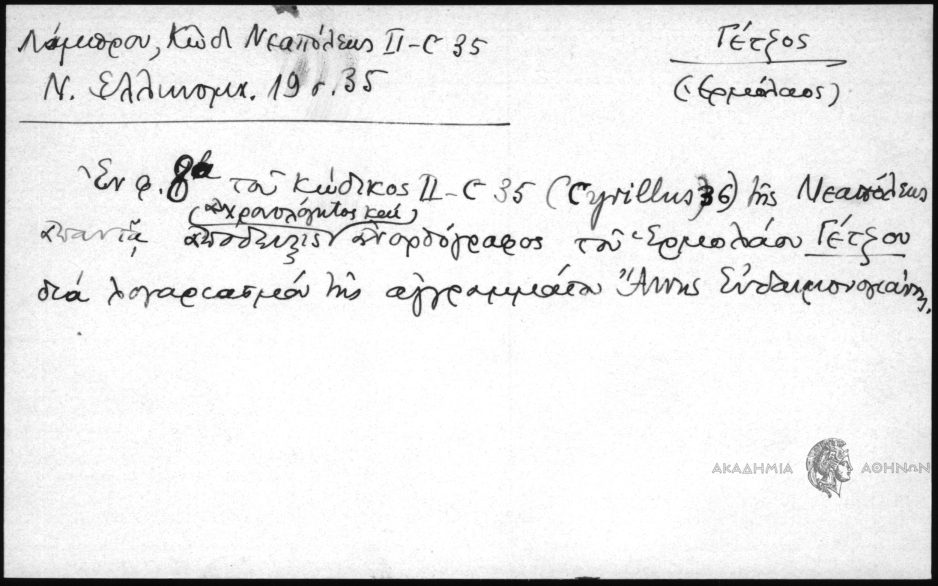 Λάμπρου, Κώδ Νεαπόλεως II-C 35
Ν. Ελληνομν. 19 σ. 35
Γέτζος
(Ἑρμόλαος)
Ἐν φ. 8α τοῦ κώδικος II-C 35 (Cyrillus 36) τῆς Νεαπόλεως
(ἀχρονολόγητος καί)
ἀπαντᾷ ἀπόδειξις ἀνορθόγραφος τοῦ Ἑρμολάου Γέτζου
διά λογαριασμόν τῆς ἀγραμμάτου Ἄννης Εὐδαιμονογιάννη.
ΑΚΑΔΗΜΙΑ ΑΘΗΝΩΝ